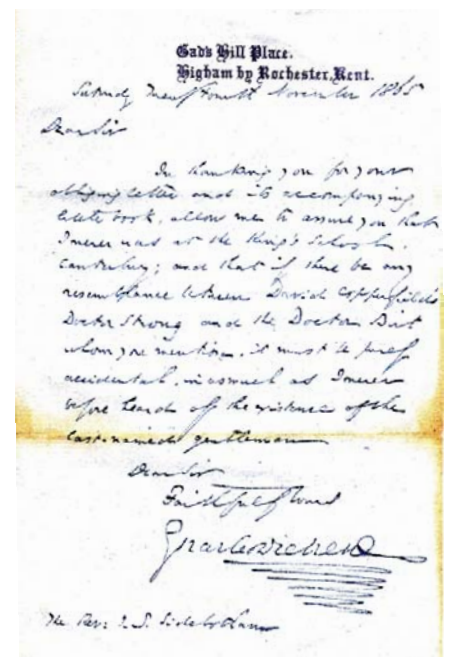 Gad's Hill Place.
Higham by Rochester, Kent.
Saturday November 1865
Dear Sir
In thanking you for your
obliging letter and its accompanying
little book, allow me to assure you that
I never was at the King's School,
Canterbury; and that if there be any
resemblance between David Copperfield's
Doctor Strong and the Doctor Birt
whom you mention, it must be purely
accidental, inasmuch as I never
before heard of the existence of the
last-named gentleman
Dear Sir
Faithfully Yours
Charles Dickens
The Rev: J. S. Sidebotham